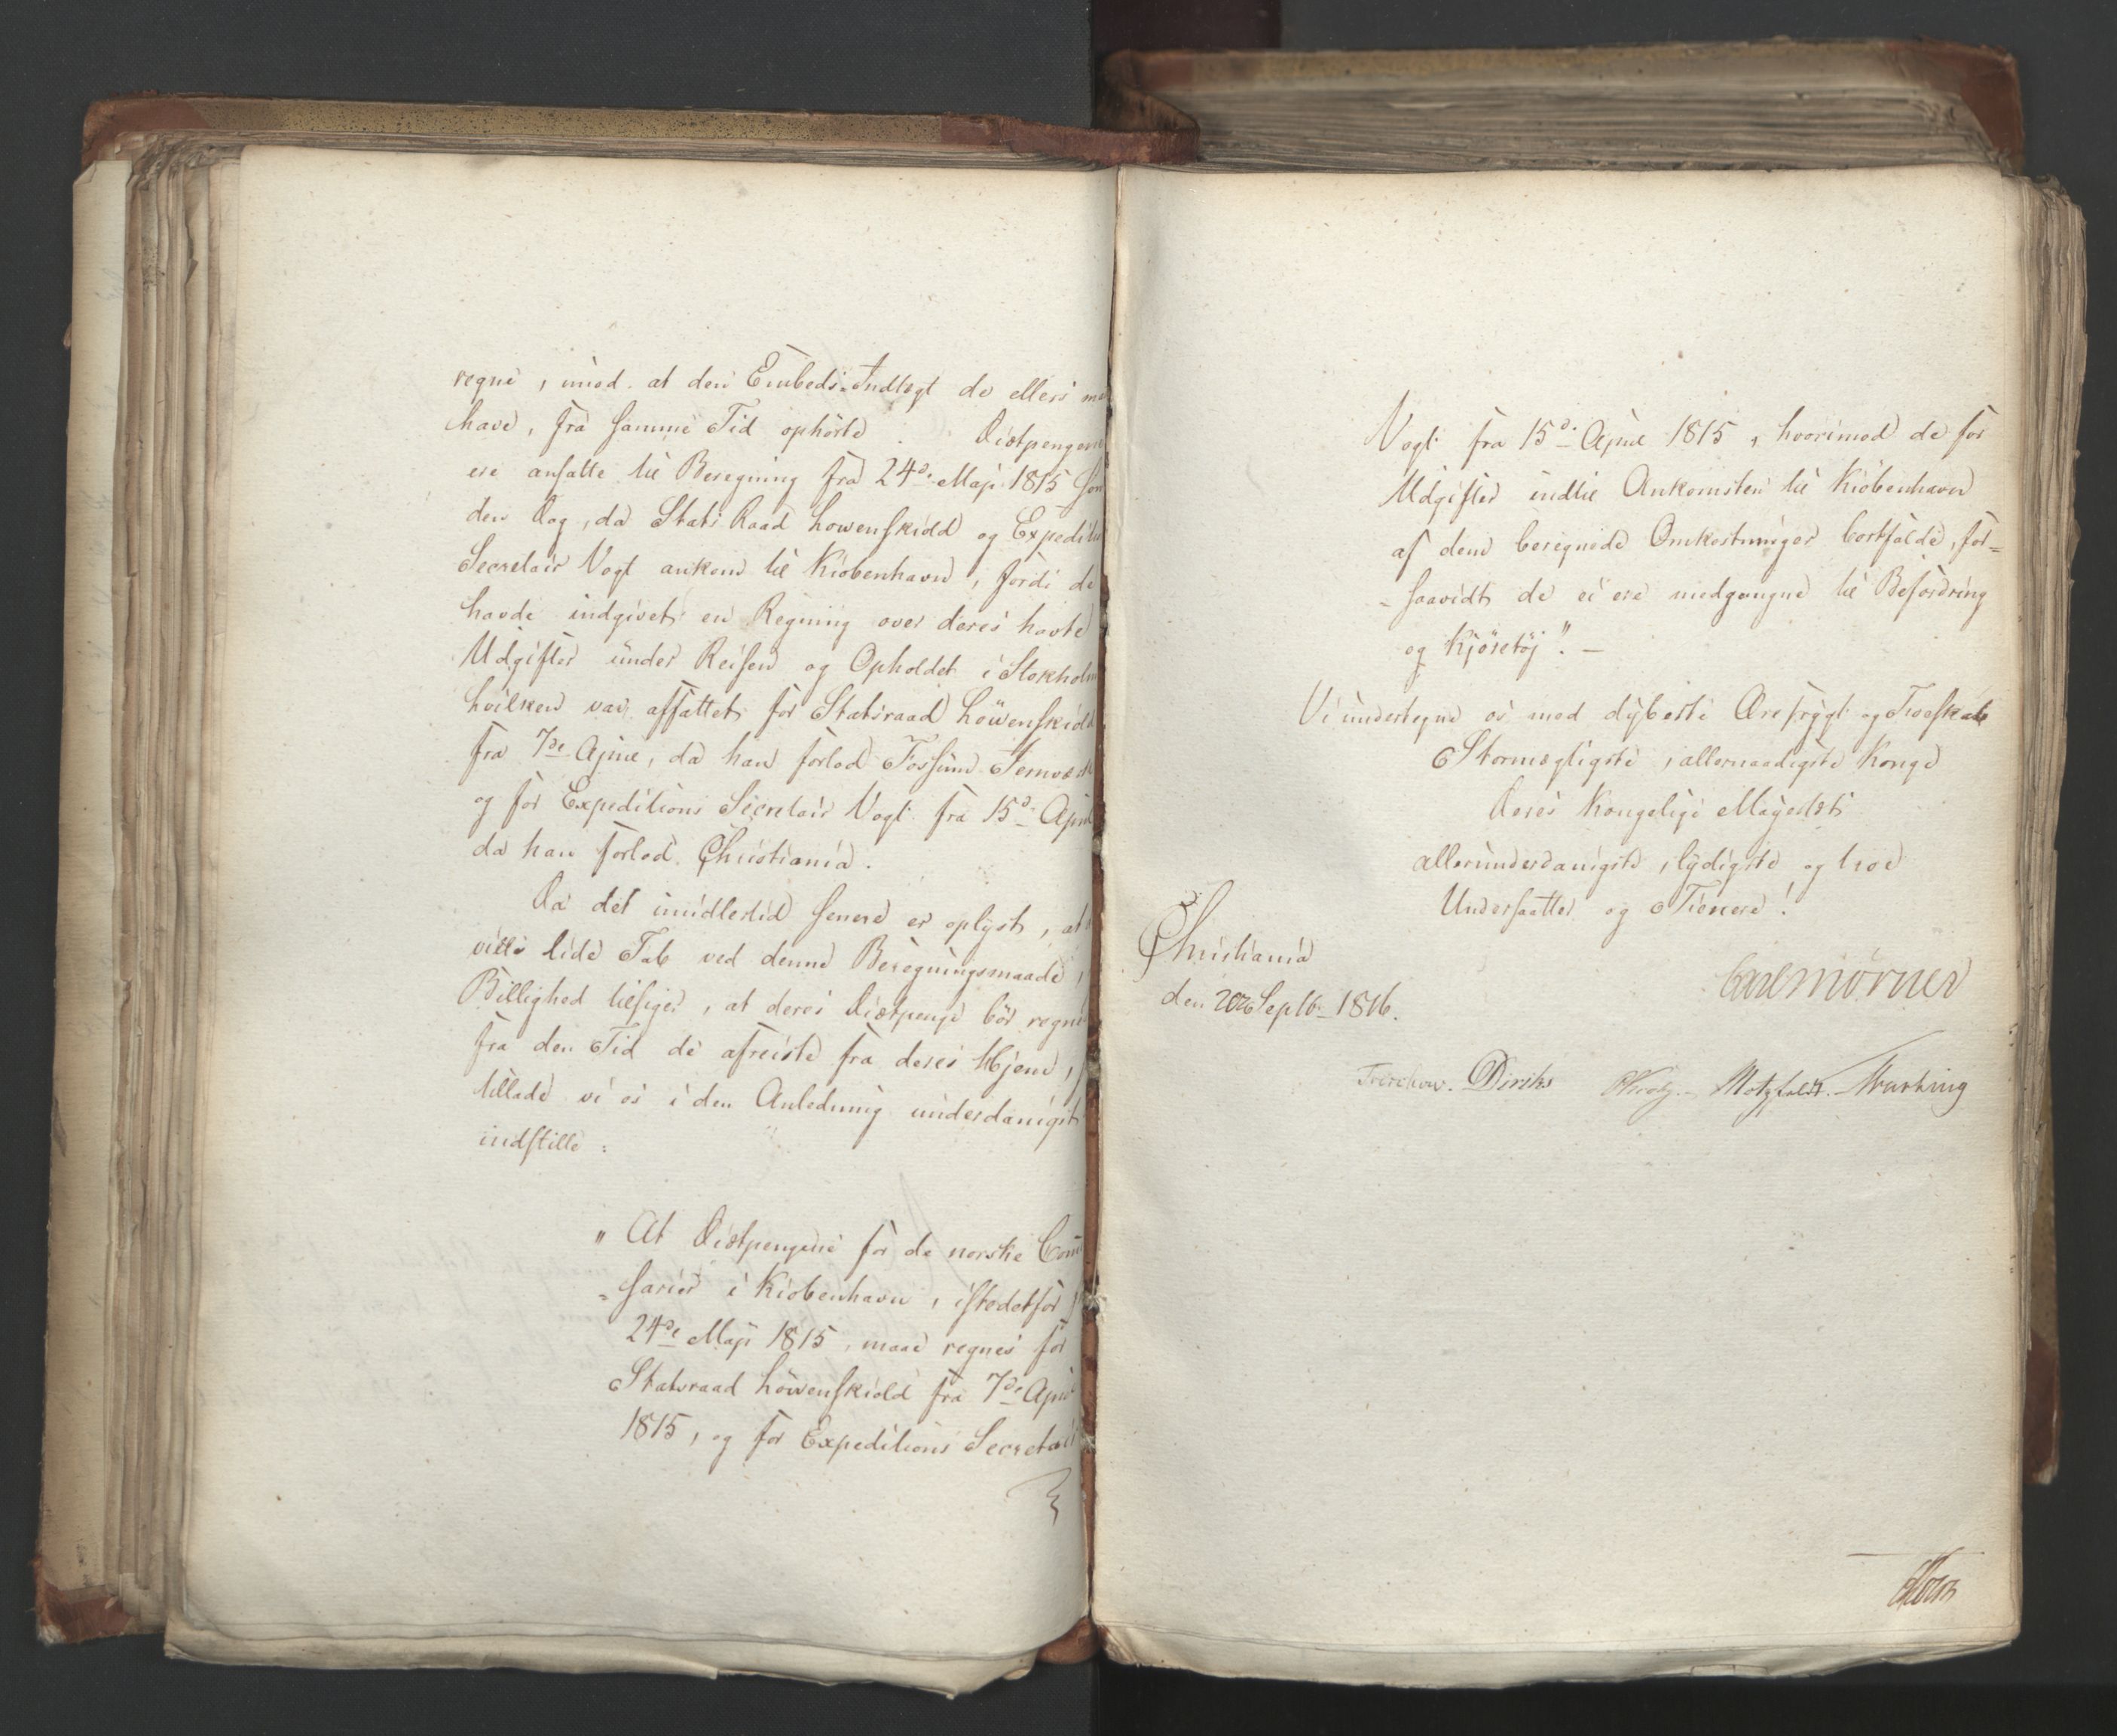 regne, imod at den Embeds-Indtægt de ellers maa
have, fra samme Tid ophørte. Diætpengene
ere ansatte til Beregning fra 24de Maji 1815 som
den Dag, da Stats Raad Løwenskiold og Expeditions
Secretair Vogt ankom til Kiøbenhavn, fordi de
havde indgivet en Regning over deres havte
Udgifter under Reisen og Opholdet i Stokholm
hvilken var affattet for Statsraad Löwenskiold
fra 7de April, da han forlod Fossum Jernværk
og for Expeditions Secretair Vogt fra 15de April
da han forlod Christiania.
Da det imidlertid senere er oplyst, at
ville lide Tab ved denne Beregningsmaade,
Billighed tilsiger, at deres Diætpenge bør regnes
fra den Tid de afreiste fra deres Hjem,
tillade vi os i den Anledning underdanigst
indstille:
" At Diætpengene for de norske Com
=sarier i Kiøbenhavn, istedetfor
24de Maji 1815, maae regnes for
Statsraad Löwenskiold fra 7de April
1815, og for Expeditions Secretair
Vogt fra 15de April 1815, hvorimod de for
Udgifter indtil Ankomsten til Kiøbenhavn
af dem beregnede Omkostninger bortfalde, for=
=saavidt de ei ere medgangne til Befordring
og Kjøretøj". —
Vi undertegne os med dybeste Ærefrygt og Troeskab
Stormægtigste, allernaadigste Konge
Deres Kongelige Majestæts
allerunderdanigste, lydigste og troe
Undersaatter og Tienere!
Christiania
den 20de Septbr 1816.
Carl Mörner
Treschow. Diriks Krog. Motzfeldt. Mustring